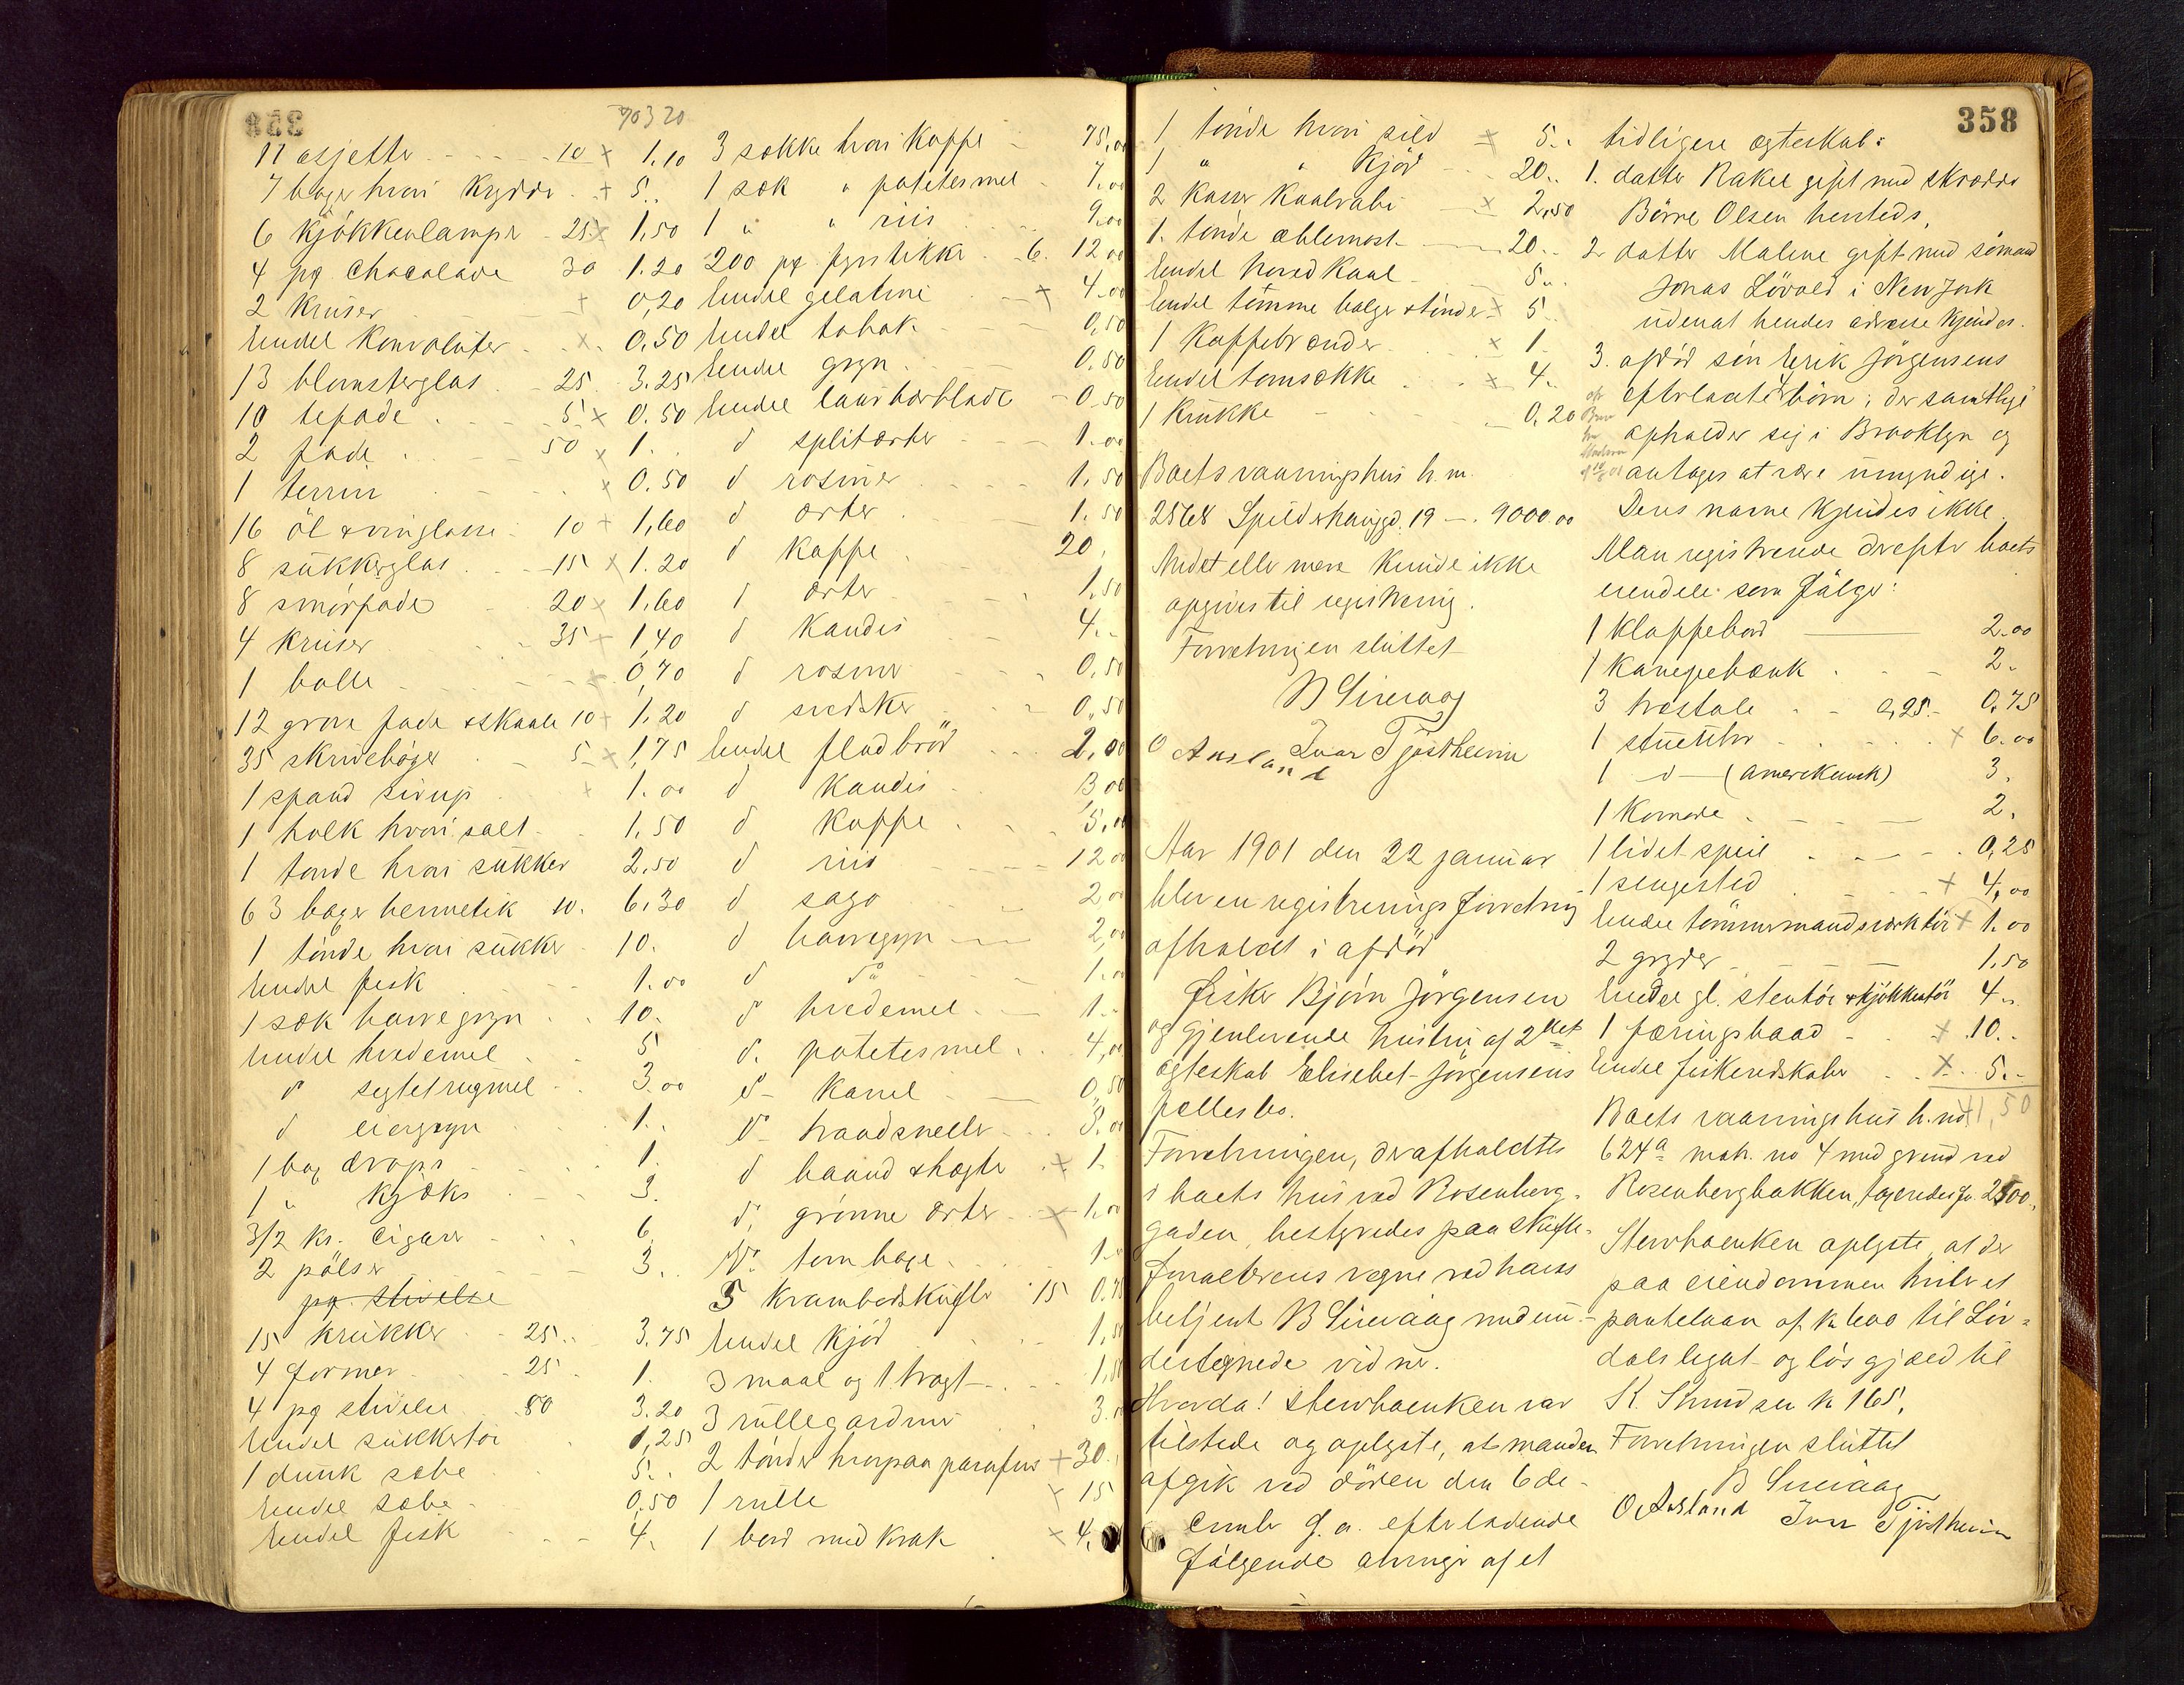 70320
11 asjetter 10 x 1,10
7 bøger hvori Krydder + 5..
6 Kjøkkenlamper 25 x 1,50
4 pg. Chocolade 30 1.20
2 Kruser + 0,20
Endel Konvoluter x 0.50
13 blomsterglas 25 3.25
10 tepade 5 x 0.50
2 fade 50 x 1.
1 terrin x 0.50
16 öl & vinglasse 10 + 1,60
8 sukkerglas 15 x 1.20
8 smörfade 20 x 1.60
4 Kruser 35 + 1,40
1 bolle 0,70
12 grove fade & skaale 10 + 1,20
35 skrivebøger 5 x 1,75
1 spand sirup + 1.00
1 holk hvori salt 1,50
1 tønde hvori sukker 2.50
63 bøger hermetik 10. 6,30
1 tönde hvori sukker 10.
Endel fisk 1.00
1 sæk havregryn 10.
Endel hvedemel 5
d° sigtet rugmel 3.00
d 1.
1 bog drops 1.
1 " kjæks 3.
3/2 ks. Cigarer 6.
2 pölser 3.
pg. stivelse
15 krukker 25 3.75
4 former 25 1.
4 pg stivelse 80 3.20
Endel sukkertöi 1,25
1 dunk sæbe 5.
Endel sæbe 0,50
Endel fisk 4.
3 sække hvori Kaffe 75,00
1 sæk " potetesmel 7.00
1 " " riis 9.00
200 pg fyrstikker 6. 12.00
Endel gelatine + 4.00
Endel tobak 0,50
Endel gryn 0,50
Endel laurbærblade 0.50
d splitærter 1.00
d rosiner 1.50
d ærter 1.50
d kaffe 20.
1 ærter 1,50
d Kandis 4..
d rosiner 0,50
d svedsker 0,50
Endel fladbröd 2.00
d Kandis 3.00
d Kaffe 5,00
d riis 12.00
d sago 2.00
d havregryn 2,00
d d° 1.00
d hvedemel 1.
d. potetesmel 4,00
d- Kanel 0,50
d- traadsneller 5.00
d baand & hægte + 1.
d. grönne ærter x 1.00
d. 1.
5 Kramboedskufler 15 0.75
Endel Kjöd 1,50
3 maal og 1 tragt 1,50
3 rullegardiner 3.
2 tönder hvorpaa parafin + 30.
1 rulle x 15
1 bord med krak x 4.
358
1 tönde hvori sild x 5..
1 " " Kjöd 20..
2 Kasser Kaalrabi x 2,50
1. tönde æblemost 20..
Endel hovedkaal 5..
Endel tomme balger & tönder x 5
1 Kaffebrænder x 1
Endel tomsække x 4.
1 Krukke 0,20
Boets vaaningshus h.m.
2568 19 9000.00
Videt eller mere kunde ikke
opgives til registrering.
Forretningen sluttet
B Sirevaag
O Aasland Ivar Tjøstheim
Aar 1901 den 22 januar
blev en registreringsforretning
afholdt i afdöd
fisker Björn Jörgensen
og gjenlevende hustru af 2det
ægteskab Elisebet Jörgensens
fællesbo.
Forretningen, der afholdtes
i boets hus ved Rosenberg-
gaden, bestyredes paa Skifte-
forvalterens vegne ved hans
betjent B Sirevaag med un-
dertegnede vidner.
Hvorda! Stervboenken var
tilstede og oplyste, at manden
afgik ved döden den 6 de-
cember f. a. efterladende
følgende arvinger af et
tidligere ægteskab:
1. datter Rakel gift med skrædder
Börre Olsen hersteds,
2 datter Malene gift med sömand
Jonas Lövold i New York
uden at hendes adresse kjendes.
3. afdöd sön Erik Jörgensens
efterladte 4 börn; der samtlige
opholder sig i Brooklyn og
antages at være umyndige.
Deres navne kjendes ikke.
Man registrerede derefter boets
eiendele som følger:
1 klaffebord 2.00
1 Kanapebænk 2.
3 træstole 0,25 0,75
1 stueuhr + 6.00
1 d (amerikansk) 3.
1 Komode 2.
1 lidet speil 0,25
1 sengested + 4,00
Endel tömmermandsværktöi + 1.00
2 gryder 1,50
Endel gl. stentöi & kjökkentöi 4..
1 færingsbaad + 10..
Endel fiskeredskaber x 5.-
41,50
Boets vaaningshus h. no
624a matr. no 4 med grund ved
Rosenbergbakken, taxeredes for 2500.
Stervboenken oplyste, at der
paa eiendommen hviler et
pantelaan af kr 600 til Löv-
dals legat og lös gjæld til
K. Knudsen kr 165,
Forretningen sluttet
B Sirevaag
O Aasland Ivar Tjøstheim